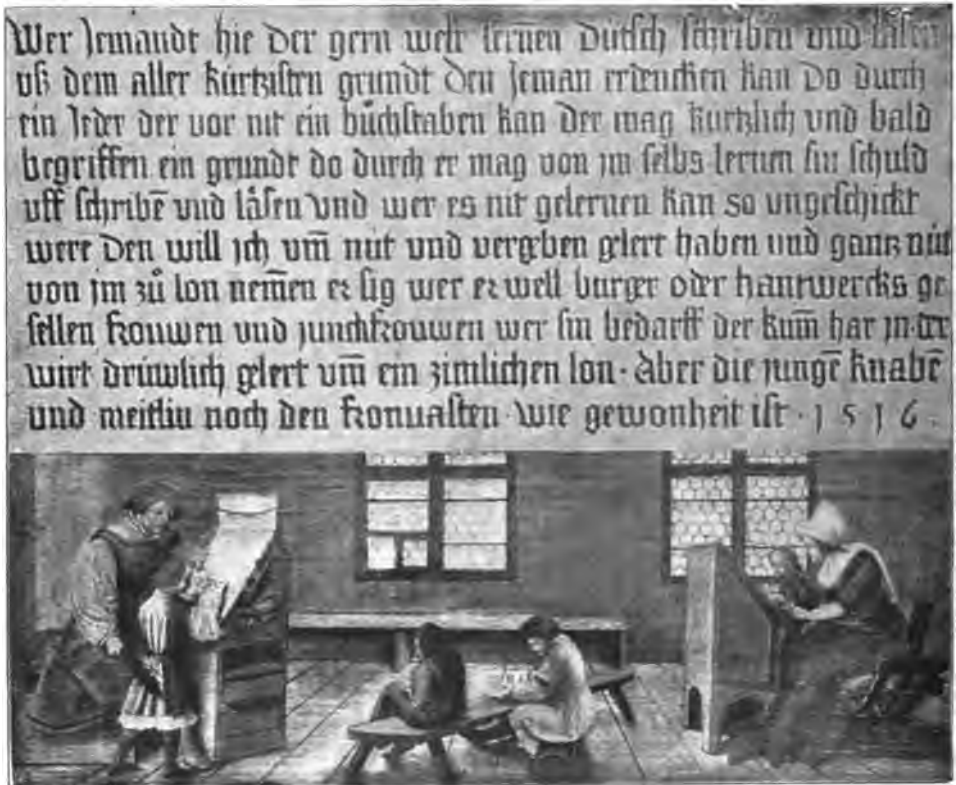 Wer Jemandt hie der gern welt lernen dütsch schriben und läsen
uß dem aller kürtzisten grundt den Jeman erdencken kan do durch
ein Jeder der vor nit ein büchstaben kan der mag kürtzlich und bald
begriffen ein grundt do durch er mag von jm selbs lernen sin schuld
uff schribē und läsen und wer es nit gelernen kan so ungeschickt
were den will jch um̄ nüt und vergeben gelert haben und gantz nüt
von jm zů lon nem̄en er sig wer er well burger oder hantwercks ge
sellen frouwen und junckfrouwen wer sin bedarff der kum̄ har jn der
wirt drüwlich gelert um̄ ein zimlichen lon · Aber die jungē knabē
und meitlin noch den fronuasten · wie gewonheit ist · 1 5 1 6 ·